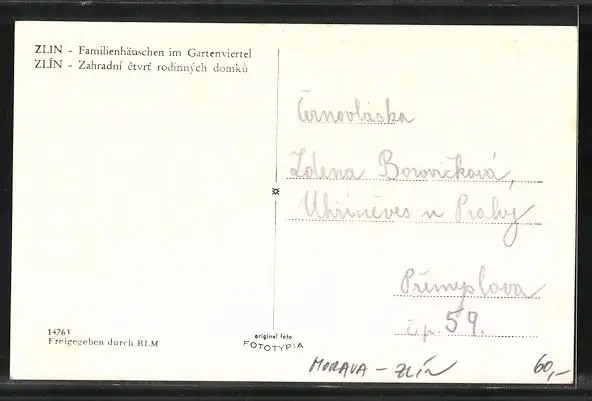 ZLIN - Familienhäuschen im Gartenviertel
ZLÍN - Zahradní čtvrť rodinných domků
Černovláska
Zdena Borovičková,
Uhříněves u Prahy
Přemyslova
č.p. 59.
14763
Freigegeben durch RLM
original foto
FOTOTYPIA
MORAVA - ZLÍN
60,-